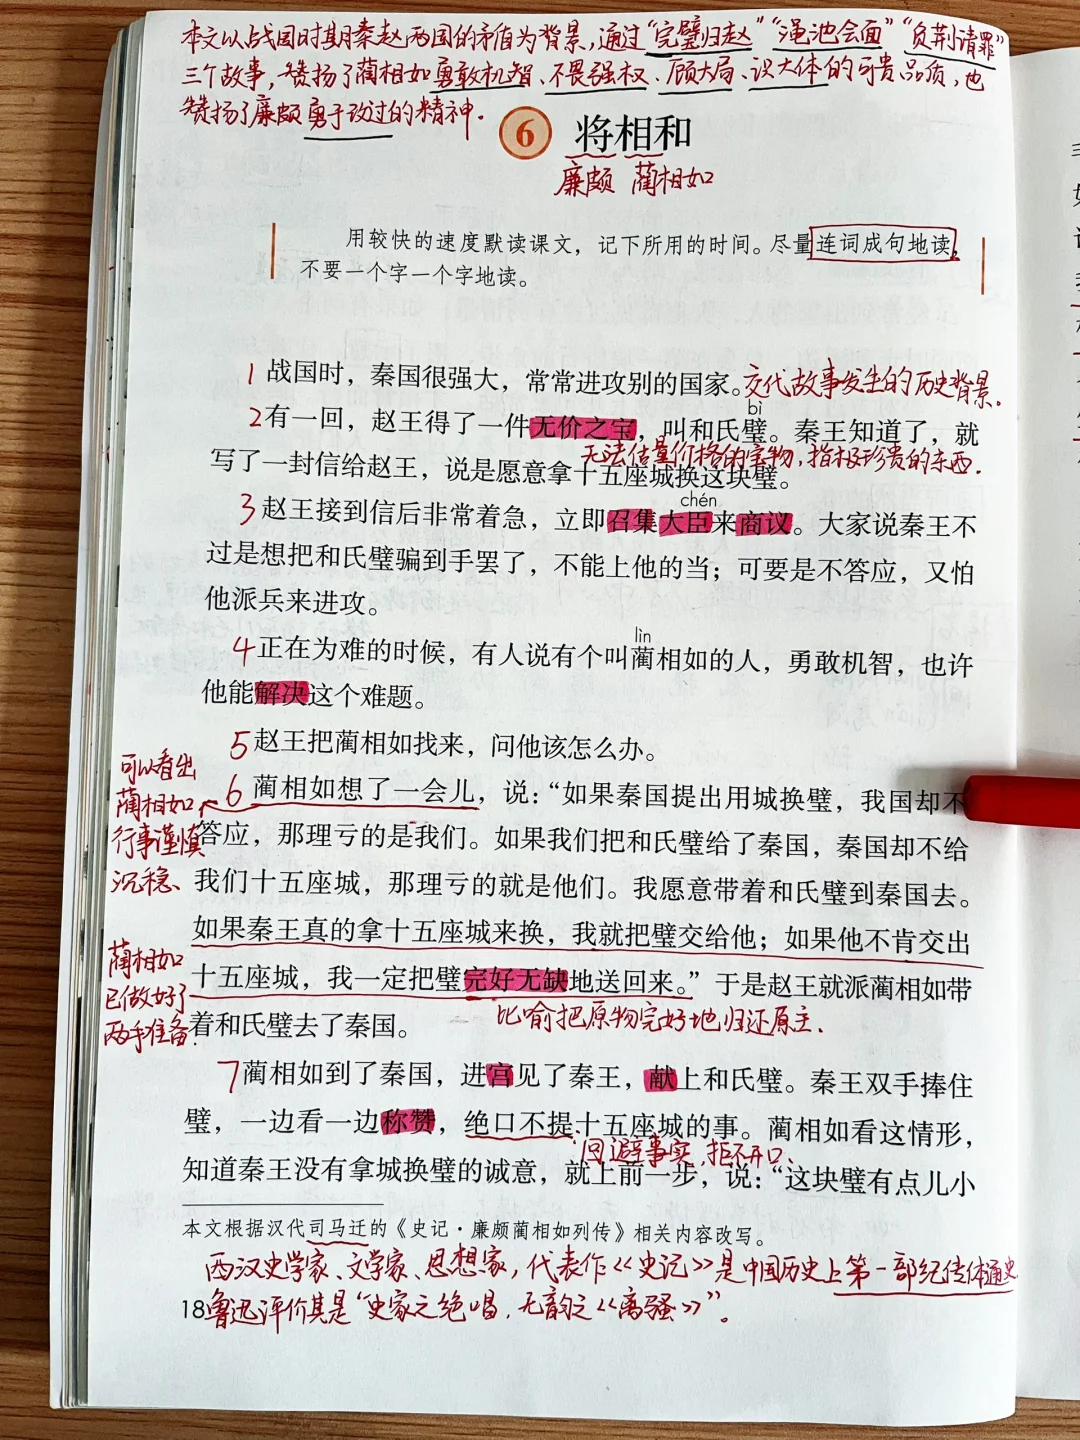 本文以战国时期秦赵两国的矛盾为背景，通过“完璧归赵”“渑池会面”“负荆请罪”
三个故事，赞扬了蔺相如勇敢机智、不畏强权、顾大局、识大体的可贵品质，也
赞扬了廉颇勇于改过的精神。
6 将相和
廉颇 蔺相如
用较快的速度默读课文，记下所用的时间。尽量连词成句地读，
不要一个字一个字地读。
1 战国时，秦国很强大，常常进攻别的国家。交代故事发生的历史背景。
bì
2 有一回，赵王得了一件无价之宝，叫和氏璧。秦王知道了，就
无法估量价格的宝物，指极珍贵的东西。
写了一封信给赵王，说是愿意拿十五座城换这块璧。
chén
3 赵王接到信后非常着急，立即召集大臣来商议。大家说秦王不
过是想把和氏璧骗到手罢了，不能上他的当；可要是不答应，又怕
他派兵来进攻。
lìn
4 正在为难的时候，有人说有个叫蔺相如的人，勇敢机智，也许
他能解决这个难题。
5 赵王把蔺相如找来，问他该怎么办。
可以看出
蔺相如
行事谨慎
沉稳、
6 蔺相如想了一会儿，说：“如果秦国提出用城换璧，我国却不
答应，那理亏的是我们。如果我们把和氏璧给了秦国，秦国却不给
我们十五座城，那理亏的就是他们。我愿意带着和氏璧到秦国去。
如果秦王真的拿十五座城来换，我就把璧交给他；如果他不肯交出
蔺相如
已做好了
两手准备.
十五座城，我一定把璧完好无缺地送回来。”于是赵王就派蔺相如带
着和氏璧去了秦国。
比喻把原物完好地归还原主.
7 蔺相如到了秦国，进宫见了秦王，献上和氏璧。秦王双手捧住
璧，一边看一边称赞，绝口不提十五座城的事。蔺相如看这情形，
回避事实，拒不开口、
知道秦王没有拿城换璧的诚意，就上前一步，说：“这块璧有点儿小
本文根据汉代司马迁的《史记·廉颇蔺相如列传》相关内容改写。
西汉史学家、文学家、思想家，代表作《史记》是中国历史上第一部纪传体通史
18
鲁迅评价其是“史家之绝唱，无韵之《离骚》”。